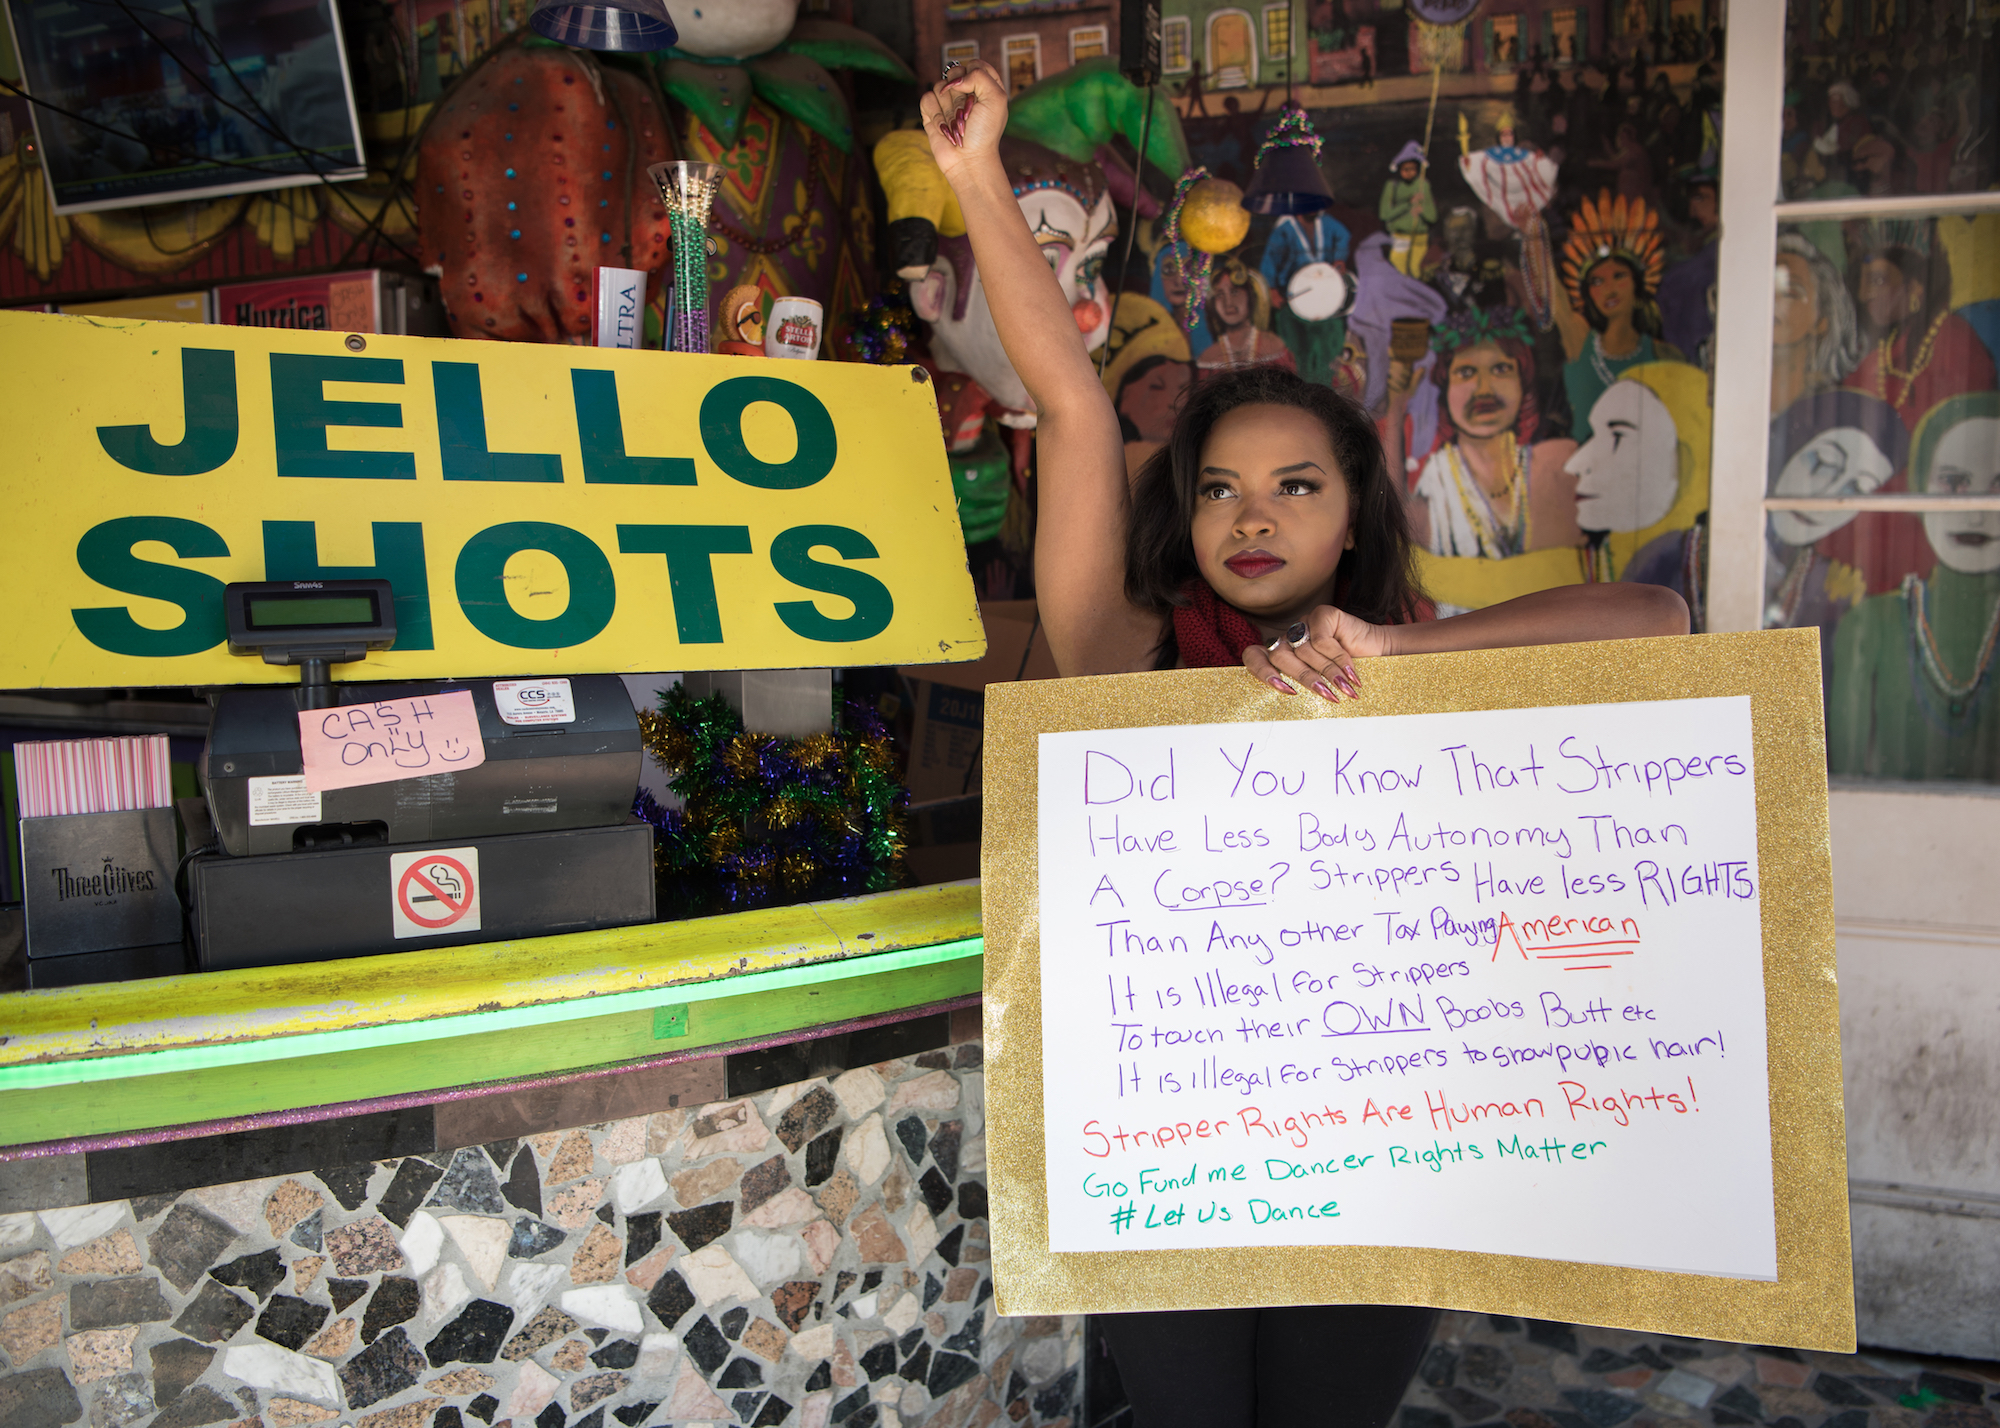 Hurrica
LTRA
STELLA
ARTOIS
JELLO
SHOTS
SAM4S
CCS
CASH
only
Three Olives
VODKA
Did You Know That Strippers
Have Less Body Autonomy Than
A Corpse? Strippers Have less RIGHTS
Than Any other Tax Paying American
It is Illegal For Strippers
To touch their OWN Boobs Butt etc
It is illegal for strippers to show pubic hair!
Stripper Rights Are Human Rights!
Go Fund me Dancer Rights Matter
# Let Us Dance